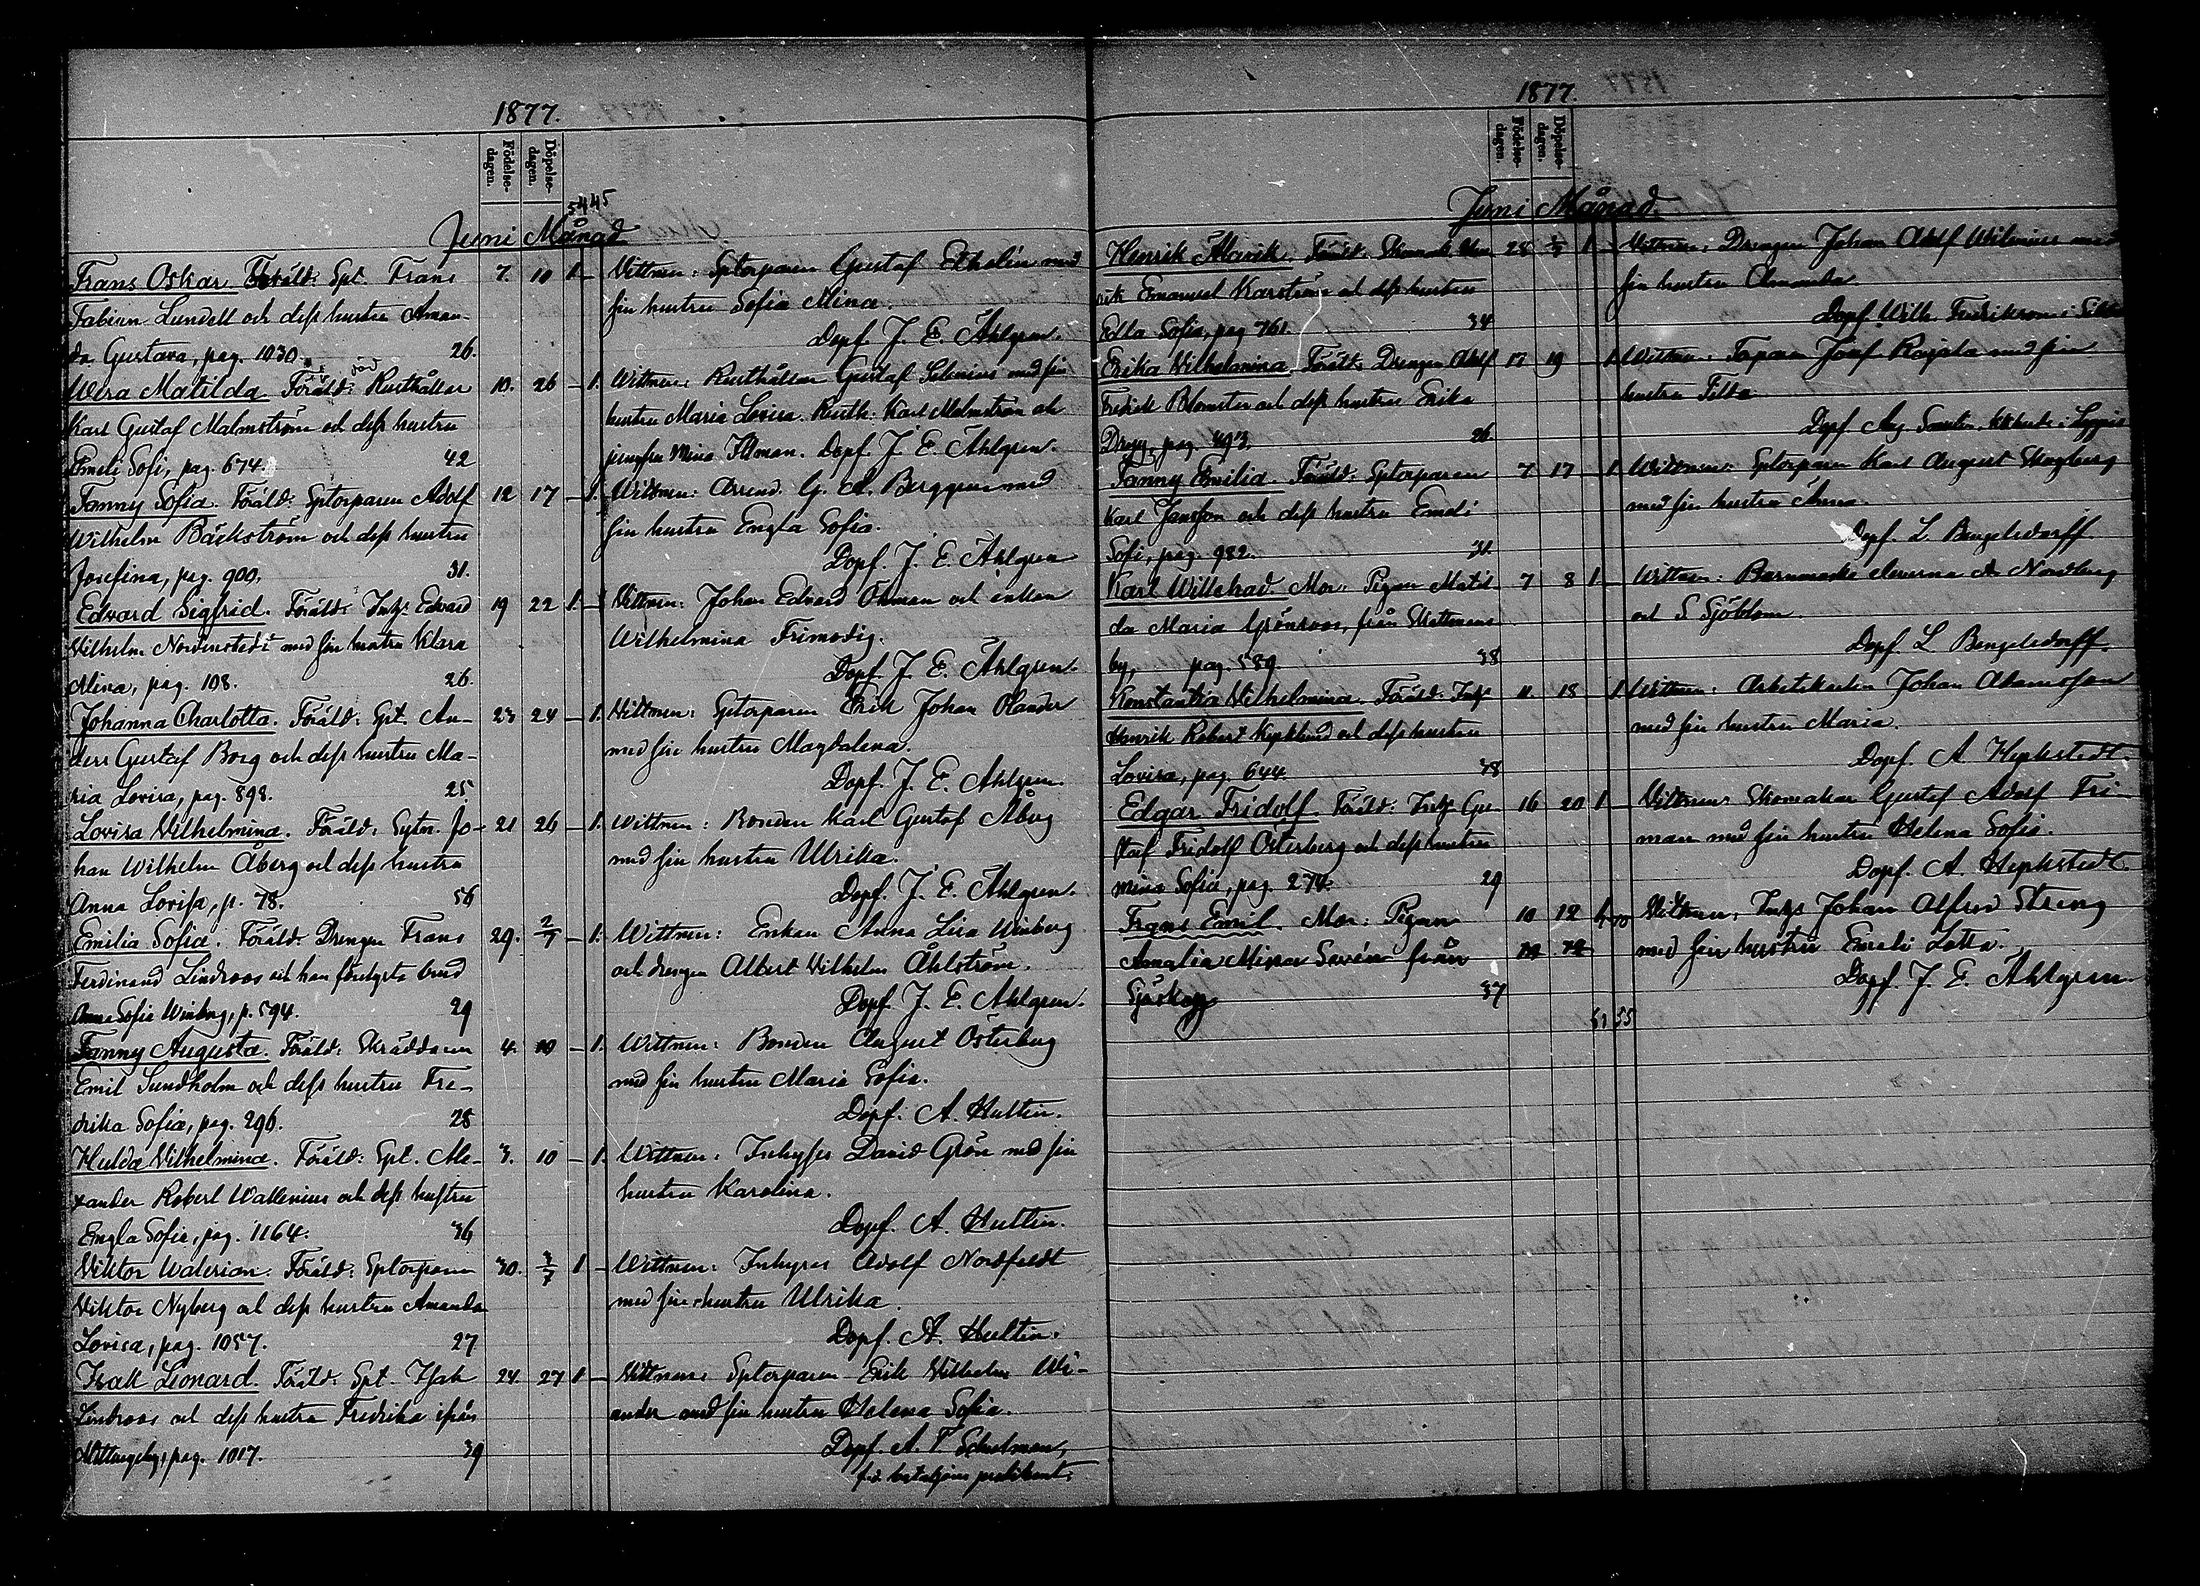 1877.
Födelse-dagen. Döpelse-dagen.
44 45
Juni Månad
Frans Oskar. Föräld: Spt. Frans 7. 10 1. – Wittnen: Sptorparen Gustaf Ekholm med
Fabian Lundell och dess hustru Aman- sin hustru Sofia Mina.
da Gustava, pag. 1030. 26. Döpf. J. E. Åhlgren.
Wera Matilda Föräld: Rusthållar 10. 26 – 1. Wittnen: Rusthållar Gustaf Selenius med sin
Karl Gustaf Malmström och dess hustru hustru Maria Lovisa. Rusth: Karl Malmström och
Emeli Sofi, pag. 674. 42 jungfru Mina Illman. Döpf. J. E. Åhlgren.
Fanny Sofia. Föräld: Sptorparen Adolf 12 17 – 1. Wittnen: Arrend. G. A. Berggren med
Wilhelm Bäckström och dess hustru sin hustru Engla Sofia.
Josefina, pag. 900. 31. Döpf. J. E. Åhlgren
Edvard Sigfrid. Föräld: Inhs Edvard 19 22 1. – Wittnen: Johan Edvard Öhman och enkan
Vilhelm Nordenstedt med sin hustru Klara Wilhelmina Frimodig.
Mina, pag. 108. 26. Döpf. J. E. Åhlgren.
Johanna Charlotta. Föräld: Spt. An- 23 24 – 1. Wittnen: Sptorparen Erik Johan Olander
ders Gustaf Borg och dess hustru Ma- med sin hustru Magdalena.
ria Lovisa, pag. 898. 25 Döpf. J. E. Åhlgren.
Lovisa Vilhelmina. Föräld: Sytn. Jo- 21 26 – 1. Wittnen: Bonden Karl Gustaf Åberg
han Wilhelm Åberg och dess hustru med sin hustru Ulrika.
Anna Lovisa, p. 78. 56 Döpf. J. E. Åhlgren.
Emilia Sofia. Föräld: Drengen Frans 29. 2/7 – 1. Wittnen: Enkan Anna Lisa Winberg
Ferdinand Lindroos och han förelofsta brud och drengen Albert Vilhelm Åhlström.
Anna Sofia Winberg, p. 594. 29 Döpf J. E. Åhlgren.
Fanny Augusta. Föräld: Skräddaren 4. 10 – 1. Wittnen: Bonden August Österberg
Emil Sundholm och dess hustru Fre- med sin hustru Maria Sofia.
drika Sofia, pag. 296. 28 Döpf. A. Hultin.
Hulda Vilhelmina. Föräld: Spt. Ale- 3. 10 – 1. Wittnen: Inhyses David Grön med sin
xander Robert Wallenius och dess hustru hustru Karolina.
Engla Sofia, pag. 1164. 36 Döpf. A. Hultin.
Viktor Walerian. Föräld: Sptorparen 30. 3/7 1 – Wittnen: Inhyses Adolf Nordfeldt
Viktor Nyberg och dess hustru Amanda med sin hustru Ulrika.
Lovisa, pag. 1057. 27 Döpf. A. Hultin.
Isak Leonard. Föräld: Spt. Isak 24. 27 1 – Wittnen: Sptorparen Erik Vilhelm Wi-
Lindroos och dess hustru Fredrika ifrån ander med sin hustru Helena Sofia.
pag. 1017. 39 Döpf. A. F. Schulman,
1877.
Födelse-dagen. Döpelse-dagen.
Juni Månad.
Henrik Alarik. Föräld: Hen- 28 1 – Wittnen: Drengen Johan Adolf Wilenius med
rik Emanuel Karström och dess hustru sin hustru Amanda
Edla Sofia, pag 761. 34 Döpf. Wilh. Fredrikson i
Erika Vilhelmina. Föräld: Drengen Adolf 17 19 1 Wittnen: Torparen Josef Rajala med sin
Fredrik Blomster och dess hustru Erika hustru Tilda
pag. 893. 26 Döpf. Aug.
Fanny Emilia. Föräld: Sptorparen 7 17 – 1 Wittnen: Sptorparen Karl August Skogberg
Karl Jansson och dess hustru Emeli med sin hustru Anna.
Sofi, pag. 982. 31. Döpf. L. Bengelsdorff.
Karl Willehad. Mor: Pigan Matil- 7 8 1 – Wittnen: Barnmorske eleverna A Nordberg
da Maria Grönroos, från och S Sjöblom.
by, pag. 589 38 Döpf. L Bengelsdorff.
Konstantia Vilhelmina. Föräld: Inhs 11 18 – 1 Wittnen: Arbetskarlen Johan Adamsson
Henrik Robert och dess hustru med sin hustru Maria.
Lovisa, pag. 644. 38 Döpf. A. Hepkstedt
Edgar Fridolf. Föräld: Inhs Gu- 16 20 1 – Wittnen: Skomakar Gustaf Adolf Fri-
staf Fridolf Österberg och dess hustru man med sin hustru Helena Sofia.
Mina Sofia, pag. 274. 29 Döpf. A. Hepkstedt.
Frans Emil. Mor: Pigan 10 12 1 Wittnen: Inhs Johan Alfred Streng
Amalia Mina Severin från 10 12 med sin hustru Emeli Lotta.
Sjöskog 37 Döpf. J. E. Åhlgren.
51 55